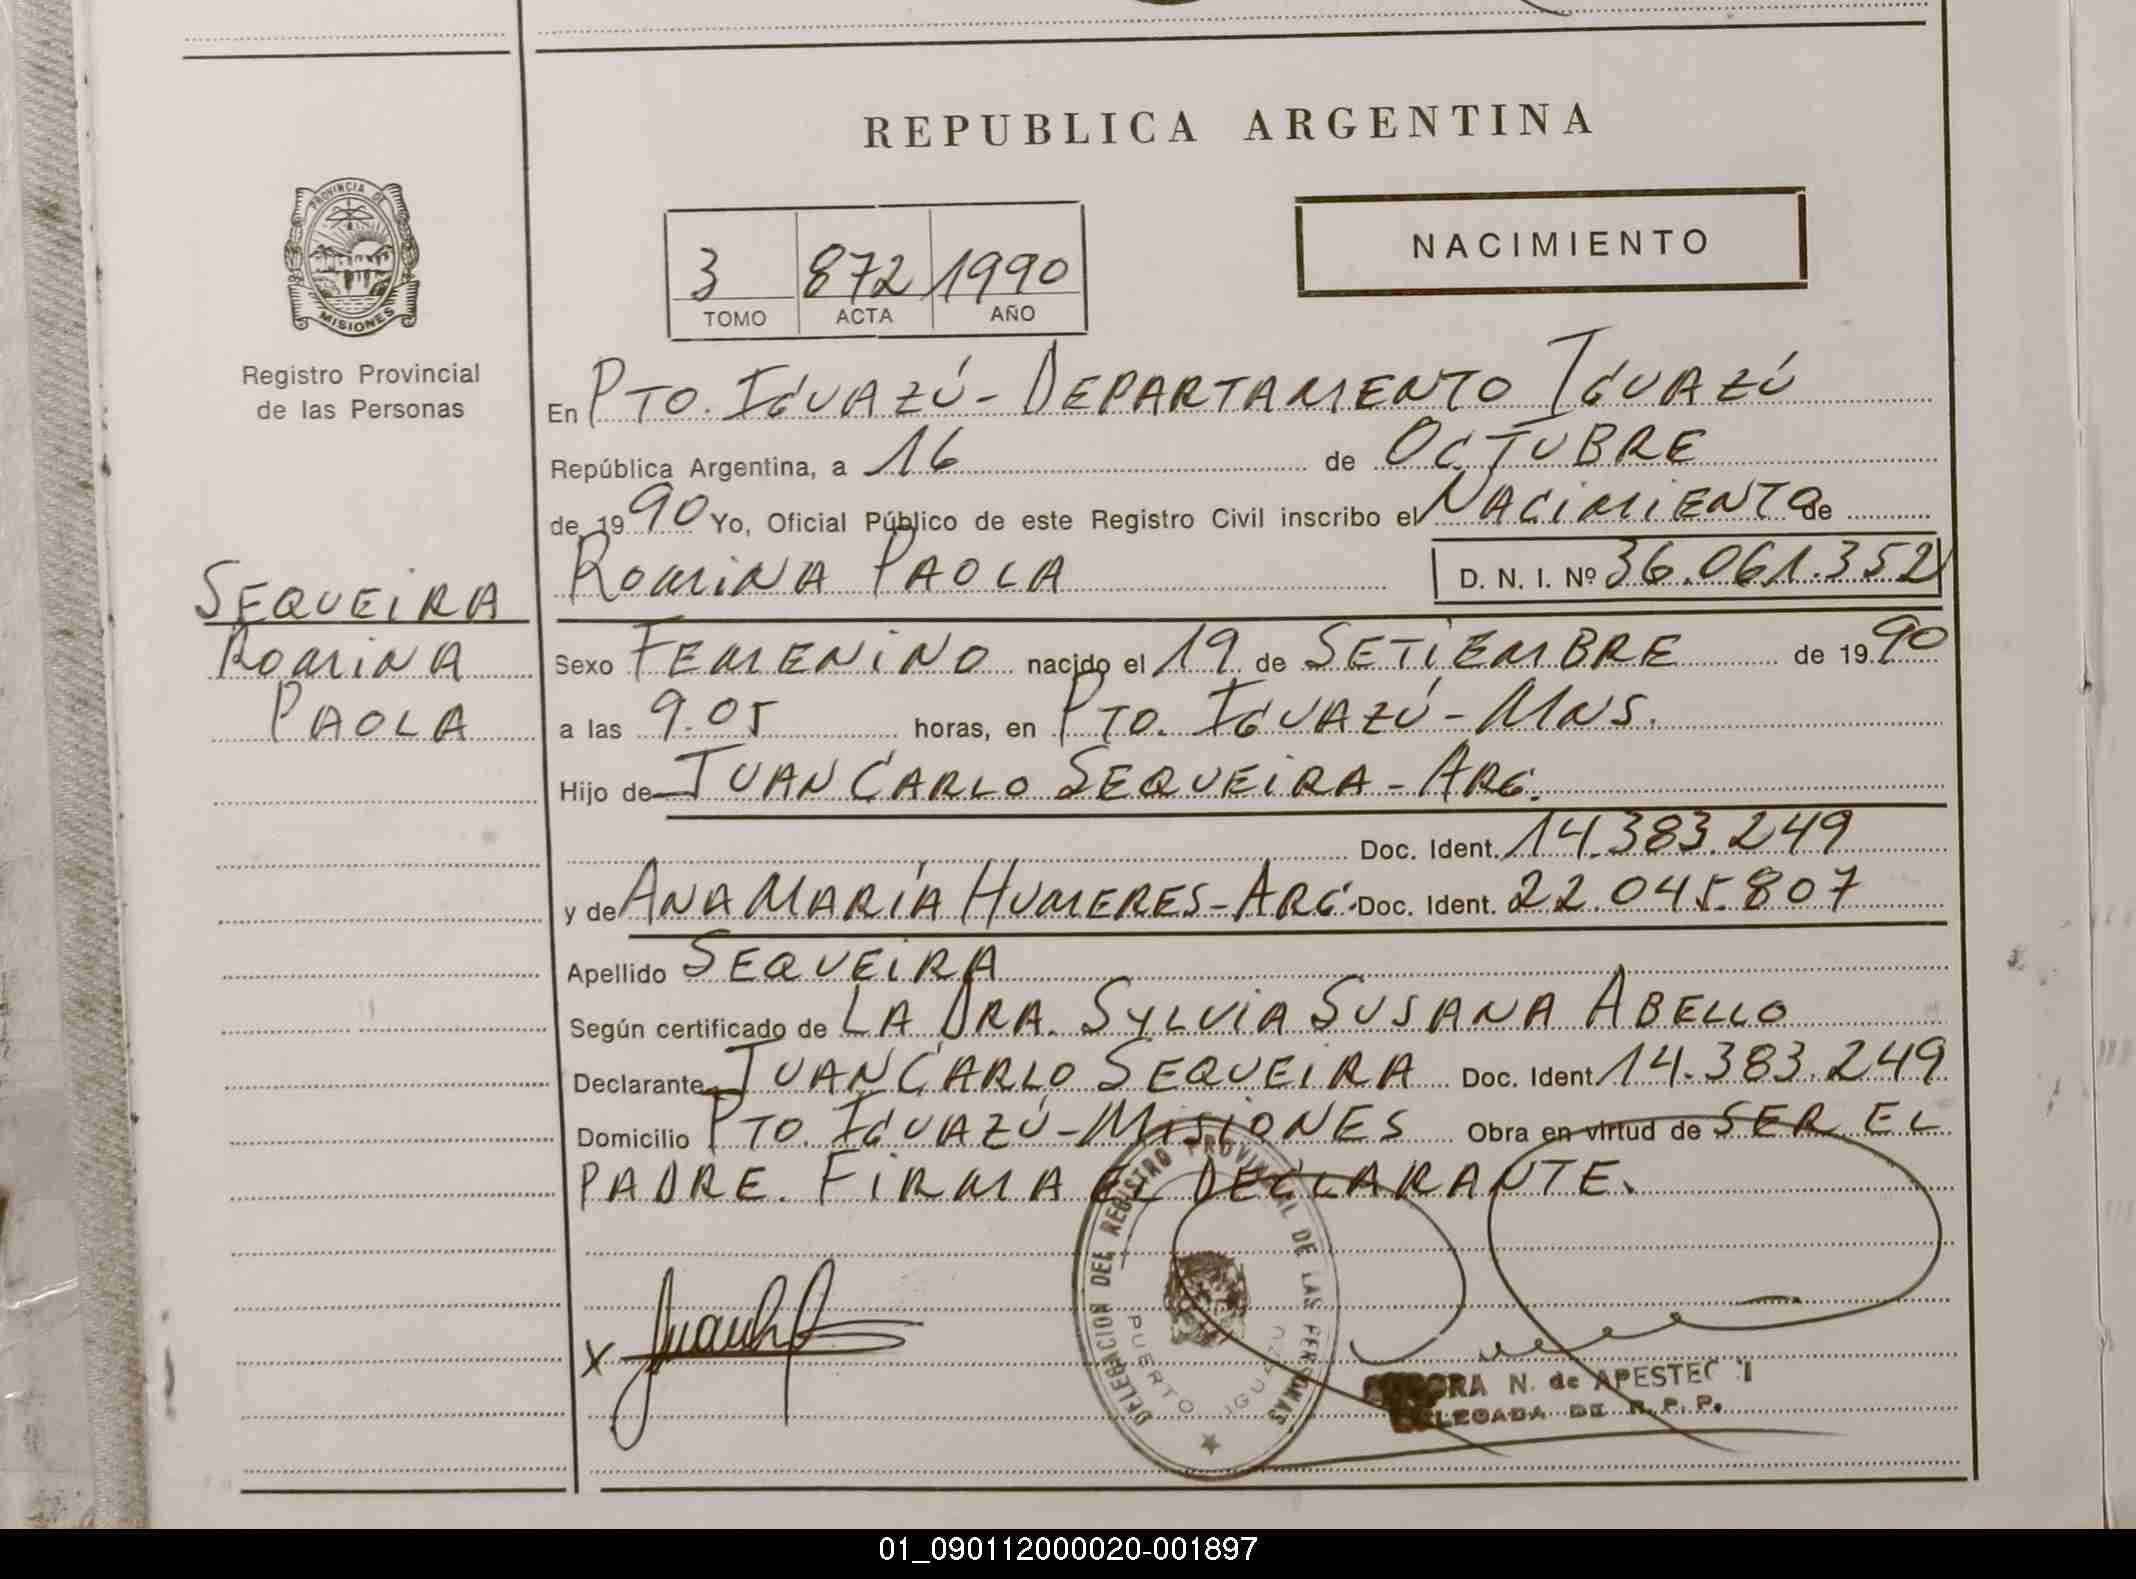 REPUBLICA ARGENTINA
PROVINCIA DE
MISIONES
Registro Provincial
de las Personas
NACIMIENTO
3 872 1990
TOMO ACTA AÑO
En PTO. IGUAZÚ - DEPARTAMENTO IGUAZÚ
República Argentina, a 16 de OCTUBRE
de 1990 Yo, Oficial Público de este Registro Civil inscribo el NACIMIENTO de
ROMINA PAOLA D. N. I. Nº 36.061.352
SEQUEIRA
ROMINA
PAOLA
Sexo FEMENINO nacido el 19 de SETIEMBRE de 1990
a las 9.05 horas, en PTO. IGUAZÚ - MNS.
Hijo de JUAN CARLO SEQUEIRA - ARG.
Doc. Ident. 14.383.249
y de ANA MARÍA HUMERES - ARG. Doc. Ident. 22.045.807
Apellido SEQUEIRA
Según certificado de LA DRA. SYLVIA SUSANA ABELLO
Declarante JUAN CARLO SEQUEIRA Doc. Ident. 14.383.249
Domicilio PTO. IGUAZÚ - MISIONES Obra en virtud de SER EL
PADRE. FIRMA EL DECLARANTE.
DELEGACION DEL REGISTRO PROVINCIAL DE LAS PERSONAS
PUERTO IGUAZU
X
N. de
DELEGADA DE R. P. P.
01_090112000020-001897